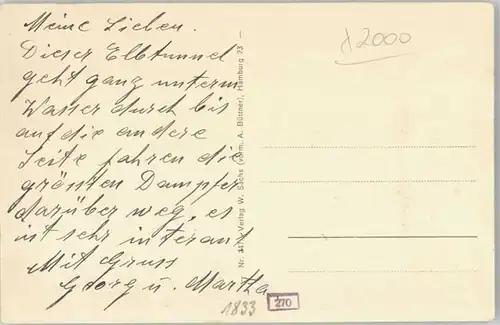 Meine Lieben.
Dieser Elbtunnel
geht ganz unterm
Wasser durch bis
auf die andere
Seite fahren die
grössten Dampfer
darüber weg, es
ist sehr interant
Mit Gruss
Georg u. Martha
2000
Verlag W. Sachs (vorm. A. Büttner), Hamburg 23 —
1833
270